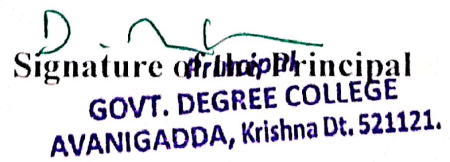 Signature of the Principal
Principal
GOVT. DEGREE COLLEGE
AVANIGADDA, Krishna Dt. 521121.